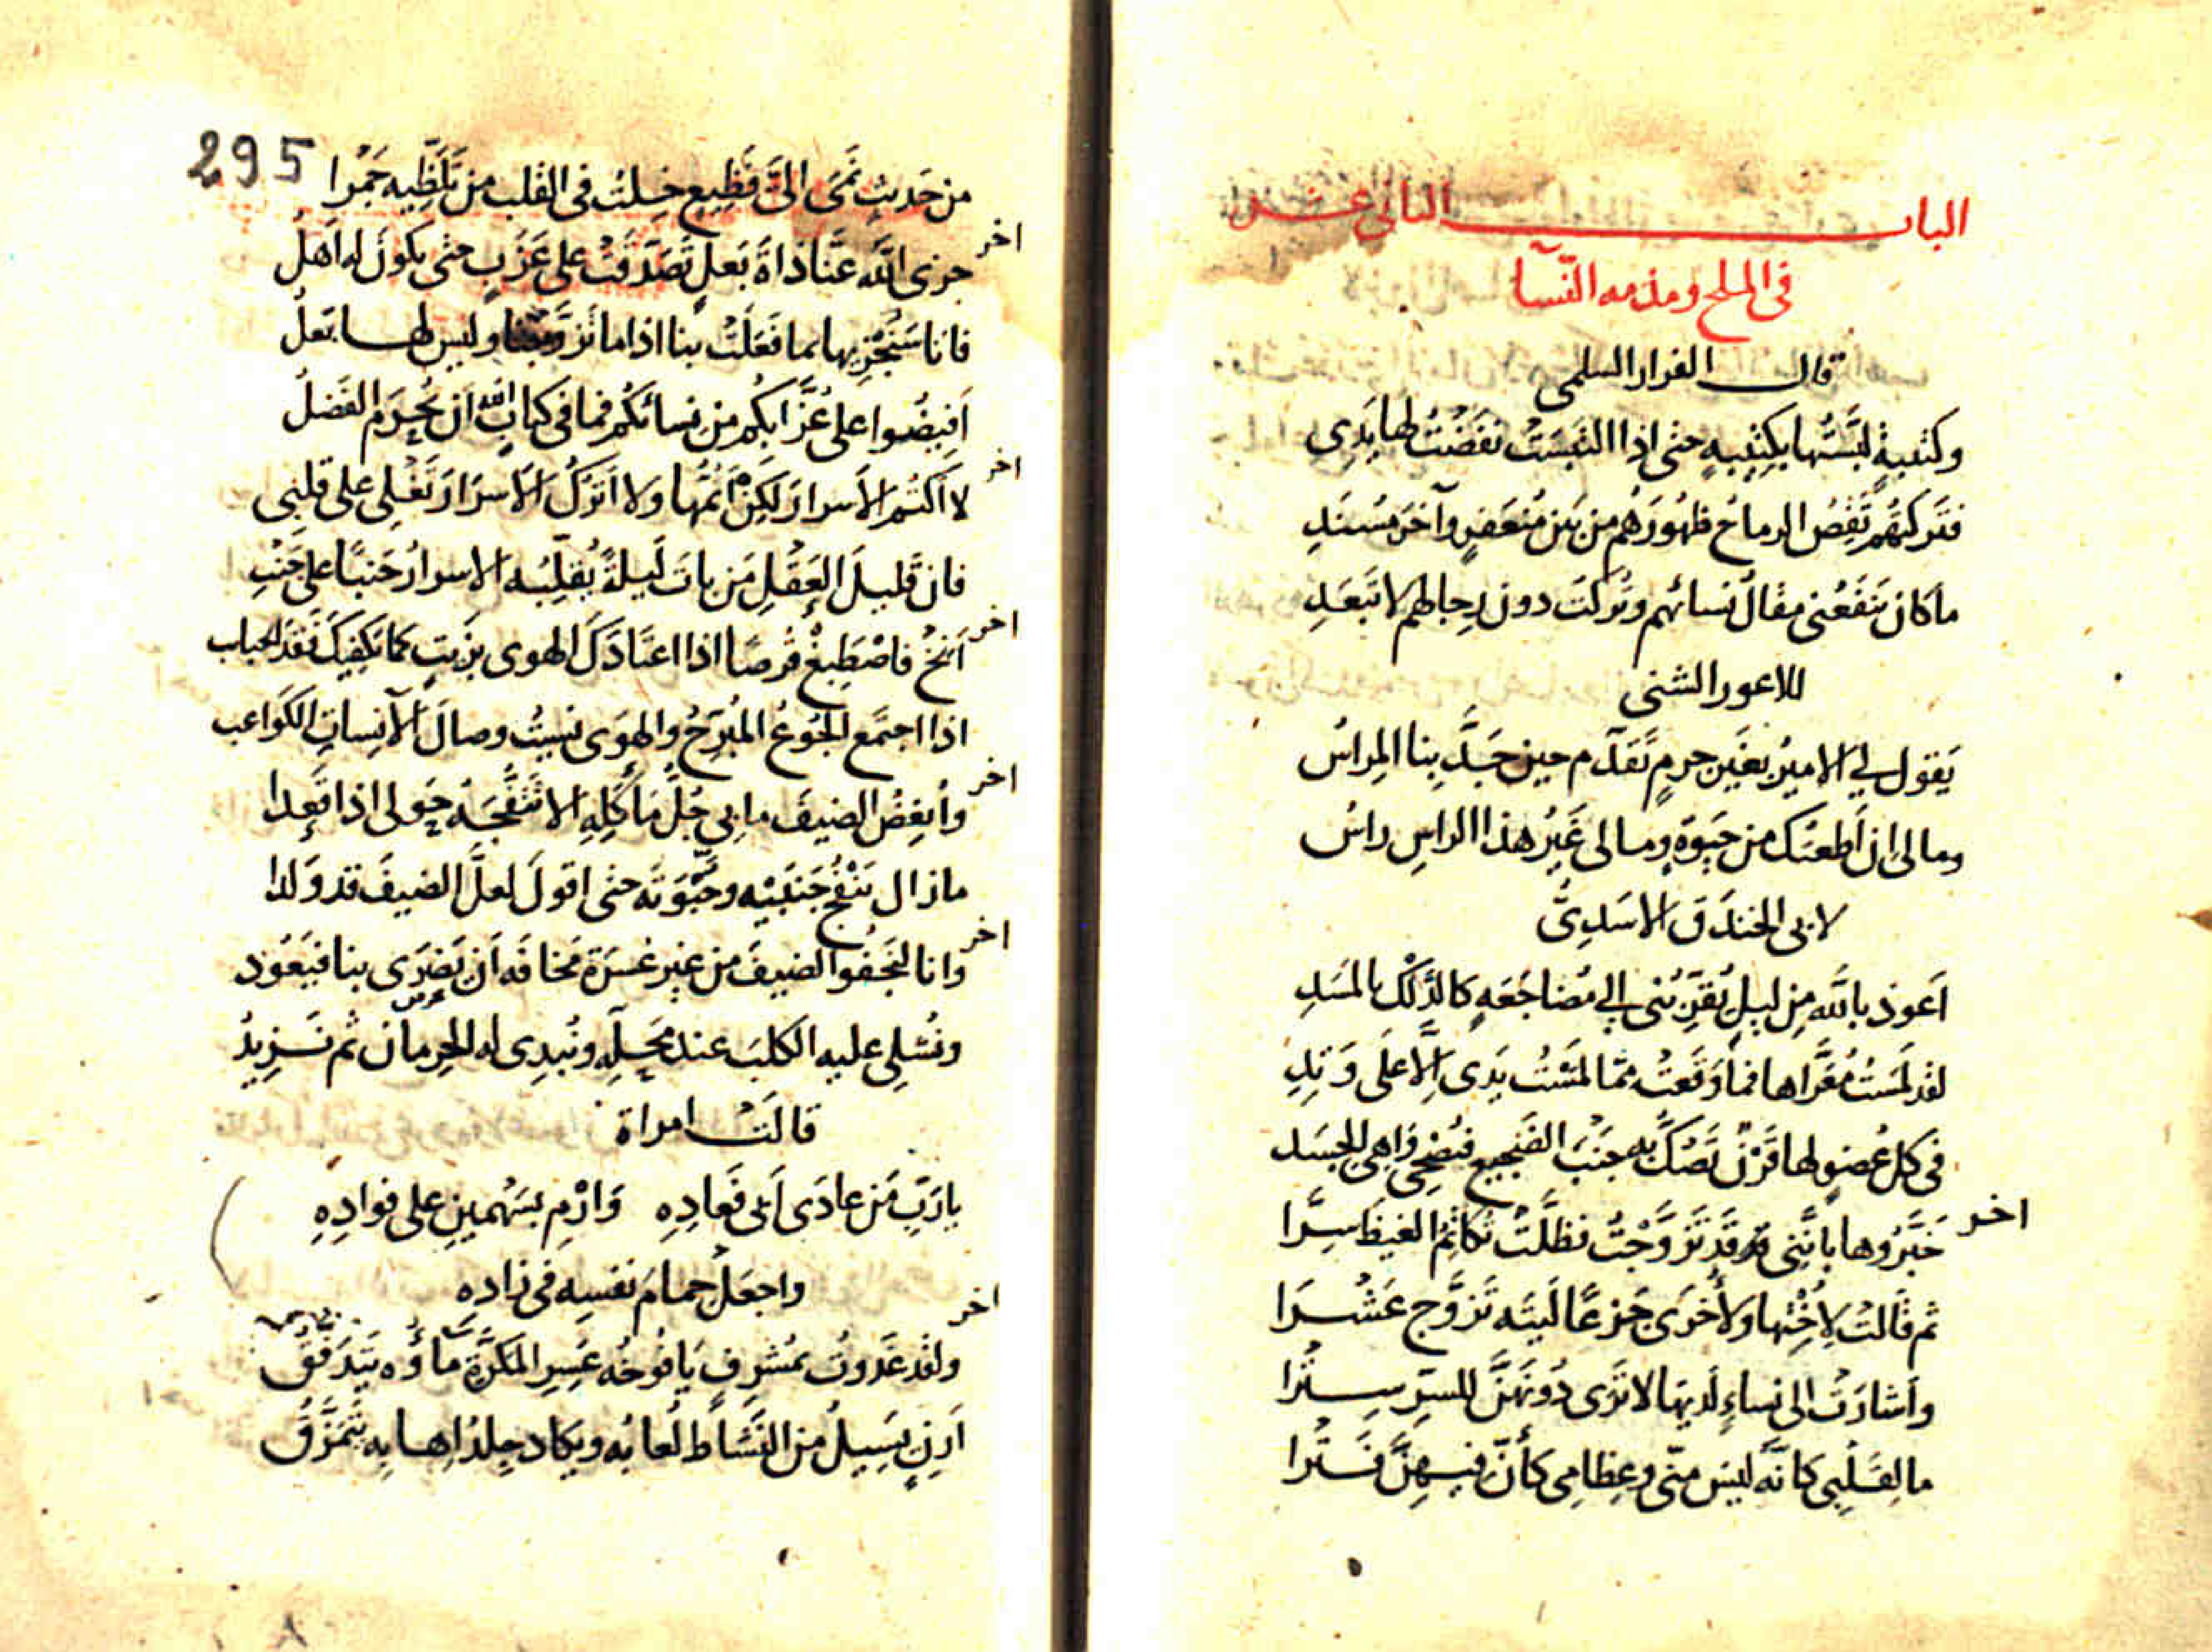 الباب الثاني عشر
في الملح ومذمه النّسآ
قال الفرار السلمي
وكتيبةٍ لبَّستُها بكتيبةٍ حتى اذا التبَسَت نفَضْتُ لها يَدِى
فتركتهُم تَقِصُ الرماحُ ظهُورَهُم من بَين مُنعَفِرٍ وآخرَ مُسنَدِ
ما كان ينَفَعُنى مقَالُ نسائهم وتُركتُ دون رِجالهم لا تَبعَدِ
للاعور الشنى
يَقول لي الامير بغَير جرمٍ تَقدّم حين جَدَّ بِنا المِراسُ
وما لي ان اَطعتك من حَيوةٍ وما لى غَيرُ هذا الراسِ راسُ
لابى الخندَق الاسَدِىّ
اَعوذ بالله مِن ليلٍ يُقَرِّبُنى الي مُضاجَعَةٍ كالدَّلْك بالمسَدِ
لقد لمَستُ مُعَّراها فما وَقَعتْ ممّا لمَسْتُ يَدِى الَّا علَى وَتِدِ
في كل عُضوٍ لها قَرْنٌ تَصُكُّ به جنبَ الضَجيع فيُضحِى وَاهىَ الجسَد
اخر
خَبَّرُوها بانَّنى قَد تَزَوَّجْتُ فظَلَّتْ تُكاتِمُ الغيظَ سِرَّا
ثم قَالتْ لِاُخْتِها ولأُخرَى جَزعًا لَيتَه تَزوَّج عَشْرَا
وأشارَتْ الى نِساءٍ لَديهَا لا تَرَى دُونَهُنَّ للسِرّ سِتْرا
ما لِقَلْبِى كانَّه ليَس منّى وعِظامِى كأنَّ فيهِنَّ فَتْرا
295
من حَديثٍ نَمَى الىَّ فَظِيعٍ خِلتُ فى القلب من تَلَظّيه جَمْرا
اخر
جزى الله عنَّا ذاةَ بَعلٍ تَصَدَّقَتْ على عَزَبٍ حتى يكونَ له اَهلُ
فانا سَنَجْزِيها بما فَعَلَتْ بنا اذا ما تَزوَّجنا وليس لها بَعلُ
اَفيضُوا على عُزَّابِكُم من نِسائكُم فما في كتابِ الله اَن يُحرَم الفَضلُ
اخر
لا اَكتُم الاَسرارَ لكِنْ اَنُمُّها ولا اَترُكُ الاَسرَارَ تَغْلِى على قلبِى
فان قَليلَ العَقْلِ مَن باتَ لَيلةً يُقلِّبُه الاسرارُ جَنبًا على جَنْبِ
اخر
اَنخْ فاصْطَبِغْ قُرصًا اذا اعتَادَكَ الهوى بزَيتٍ كما يَكفيكَ فَقدَ الحبايب
اذا اجتَمع الجُوعُ المُبَرّحُ والهَوى نسِيتُ وصالَ الآنِساتِ الكَواعب
اخر
وأبغِضُ الضيفَ ما بي جُلُّ مَأكَلِهِ الا تَنَفُّجَهُ حَولى اذا قَعِدا
ما زال يَنْفُجُ جَنبَيْه وحُبْوَتَه حتى اقولَ لعلَّ الضيفَ قد وَلَدا
اخر
وانا لنَجفُوا الضيفَ من غير عُسرَةٍ مَخافَة اَن يَضرَى بنا فيَعُود
ونُشلِى عليه الكلبَ عند مَحَلِّه ونُبدِى له الحِرمان ثم نَزِيدُ
قالَتْ امراة
يا رَبّ مَن عادَى اَبى فَعادِهِ وَارْمِ بسَهْمينِ على فوادِهِ
واجعَلْ حمامَ نفسِه في زادِه
اخر
ولقد غَدَوتُ بمُشرفٍ يَافُوخُه عَسِرِ المَكرَّةِ مَاؤُه يَتَدَفَّقُ
اَرِنٍ يَسيلُ من النَّشاطِ لُعابُه ويكاد جِلدُ اِهابِه يتَمَزَّقُ